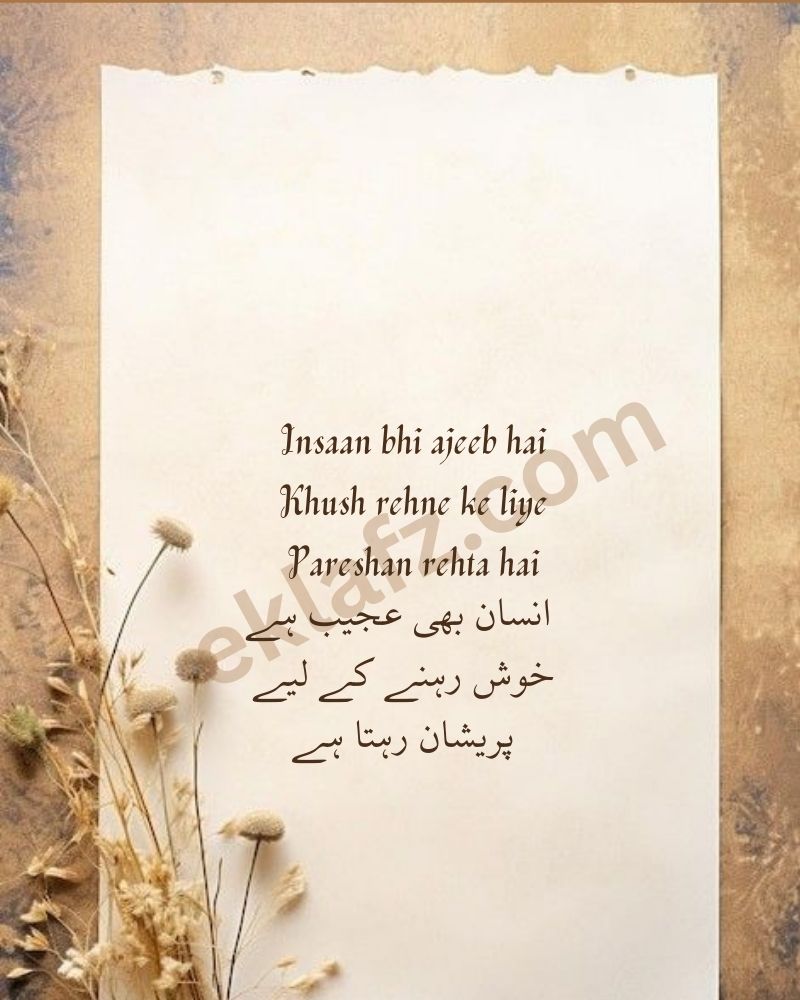 Insaan bhi ajeeb hai
Khush rehne ke liye
Pareshan rehta hai
انسان بھی عجیب ہے
خوش رہنے کے لیے
پریشان رہتا ہے
eklafz.com